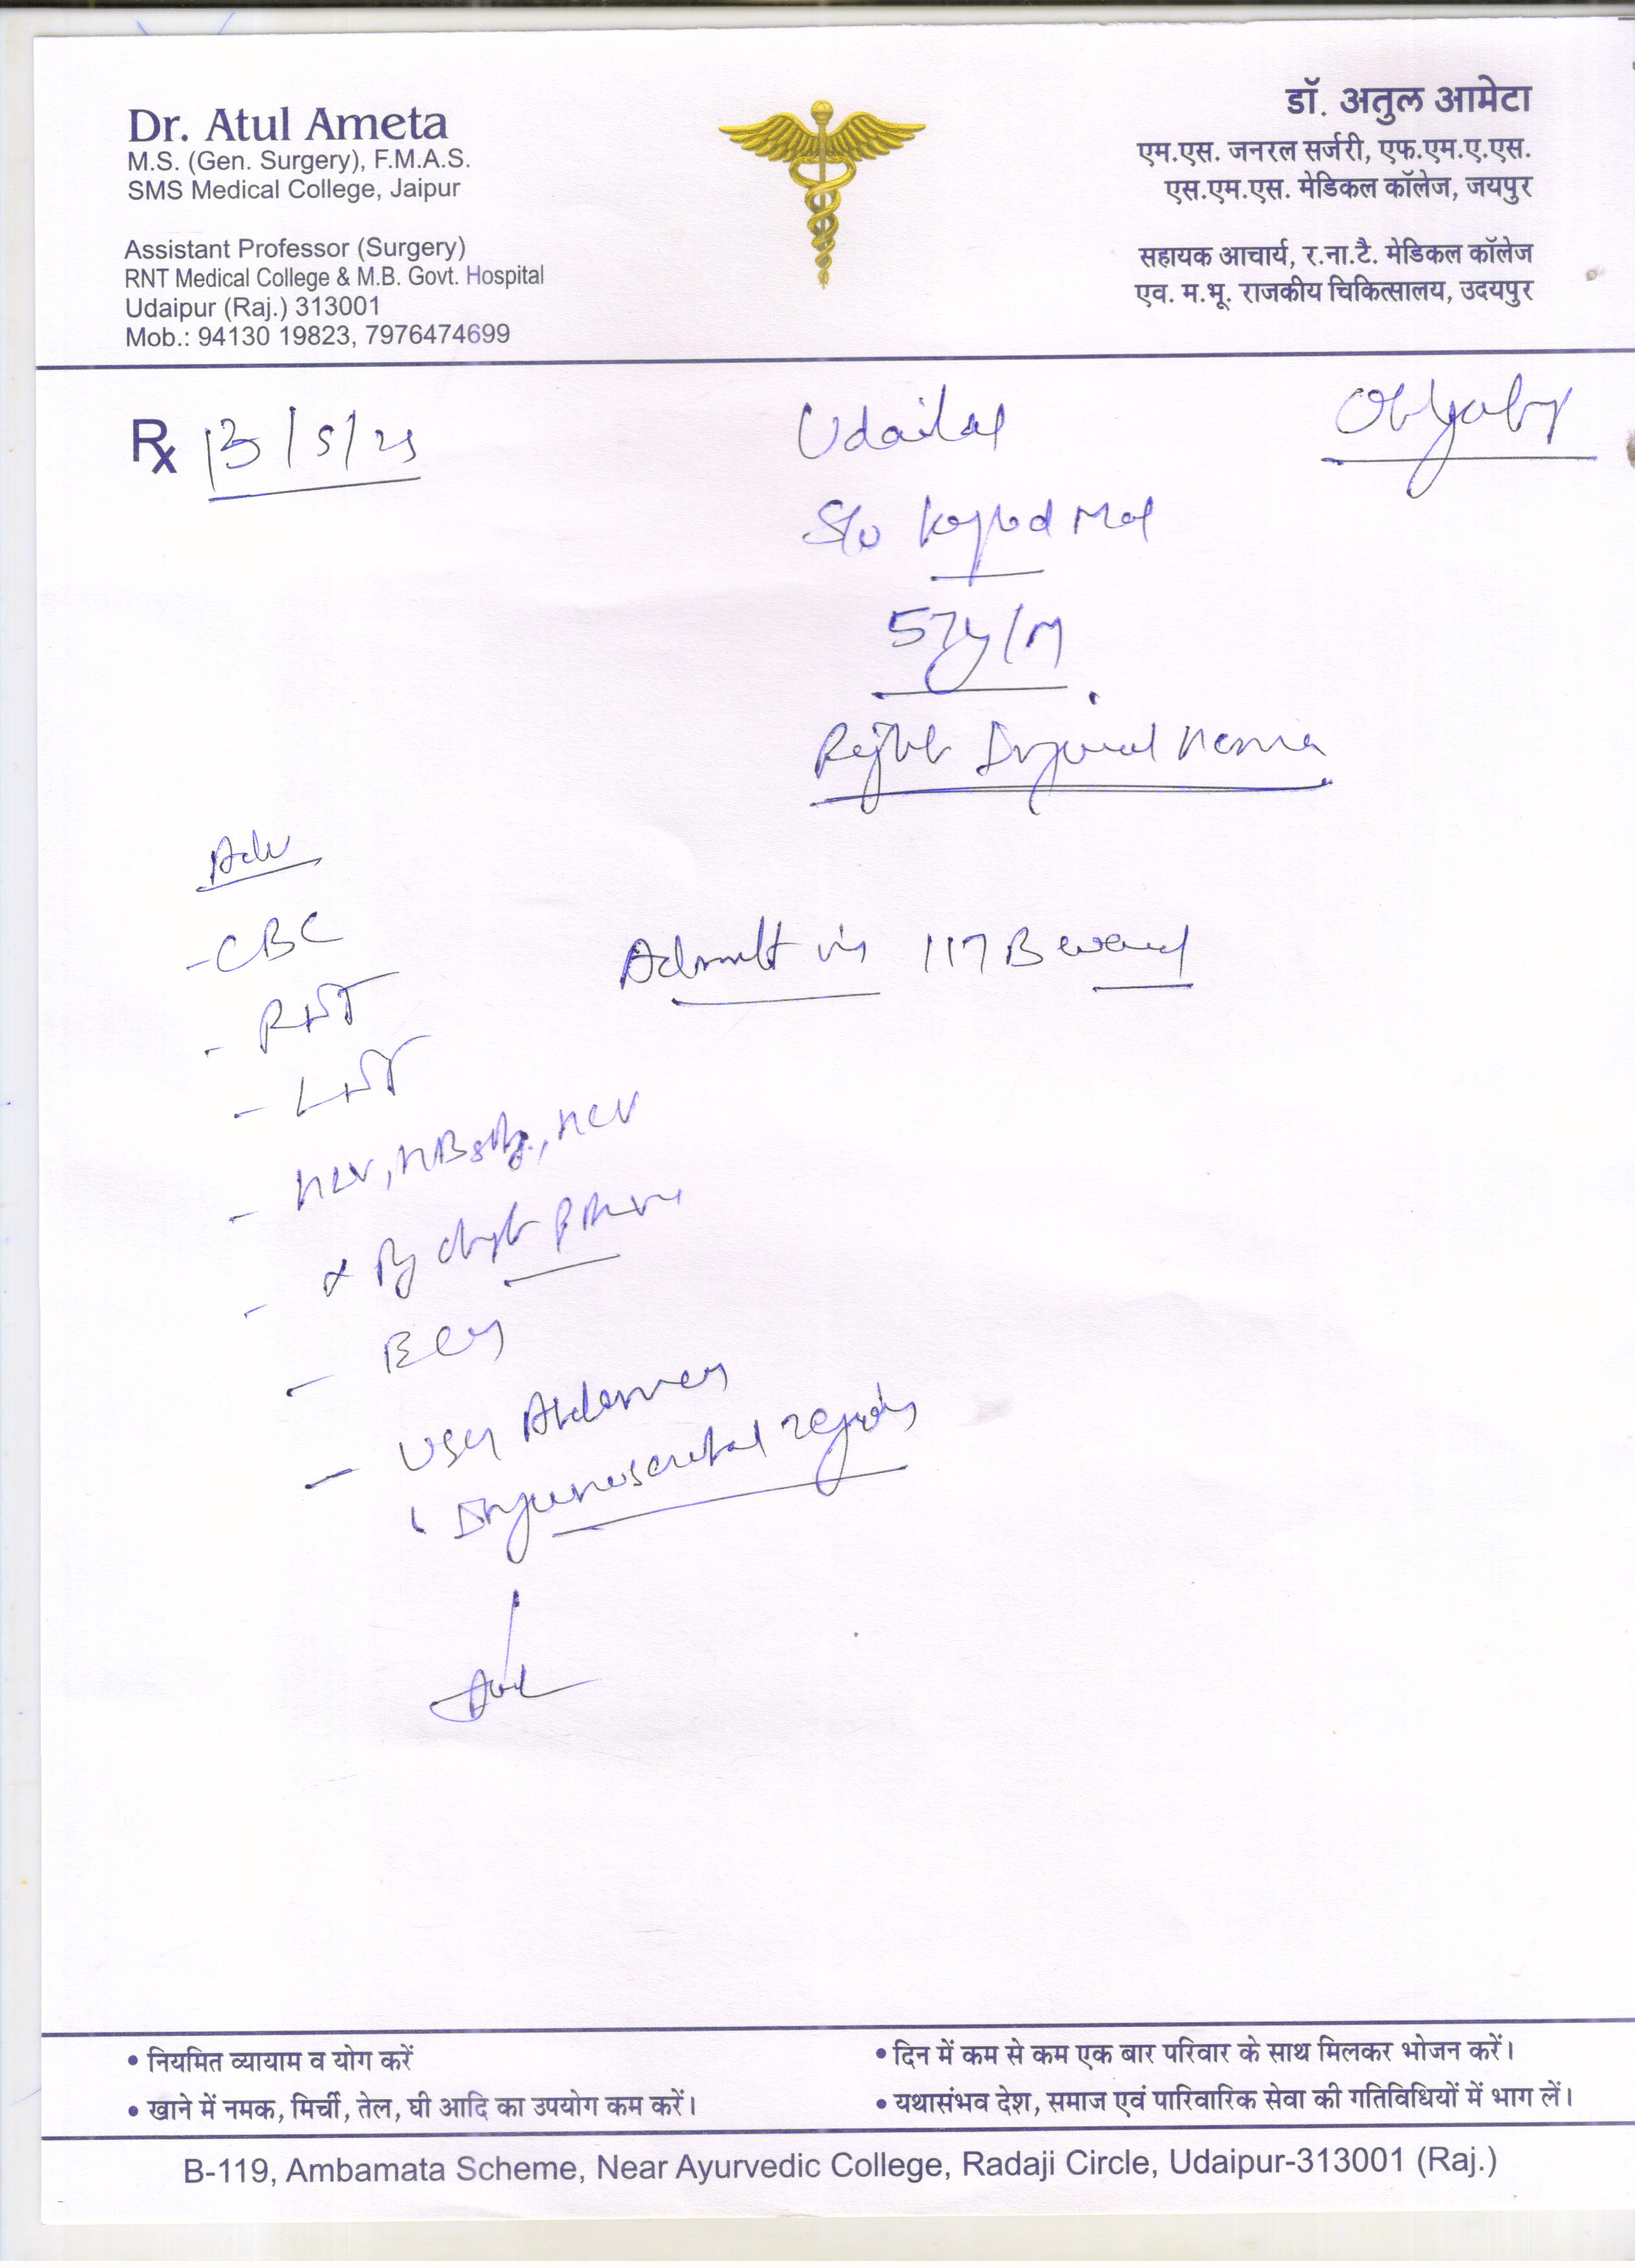 Dr. Atul Ameta
M.S. (Gen. Surgery), F.M.A.S.
SMS Medical College, Jaipur
Assistant Professor (Surgery)
RNT Medical College & M.B. Govt. Hospital
Udaipur (Raj.) 313001
Mob.: 94130 19823, 7976474699
डॉ. अतुल आमेटा
एम.एस. जनरल सर्जरी, एफ.एम.ए.एस.
एस.एम.एस. मेडिकल कॉलेज, जयपुर
सहायक आचार्य, र.ना.टै. मेडिकल कॉलेज
एव. म.भू. राजकीय चिकित्सालय, उदयपुर
Rx 13/5/25
Udailal
S/o
57y/M
Right Inguinal Hernia
Adv
- CBC
Admit in 117 B ward
- RFT
- LFT
- HIV, HBsAg, HCV
- X Ray chest
- ECG
- USG Abdomen
Inguinoscrotal region
• नियमित व्यायाम व योग करें
• खाने में नमक, मिर्ची, तेल, घी आदि का उपयोग कम करें।
• दिन में कम से कम एक बार परिवार के साथ मिलकर भोजन करें।
• यथासंभव देश, समाज एवं पारिवारिक सेवा की गतिविधियों में भाग लें।
B-119, Ambamata Scheme, Near Ayurvedic College, Radaji Circle, Udaipur-313001 (Raj.)